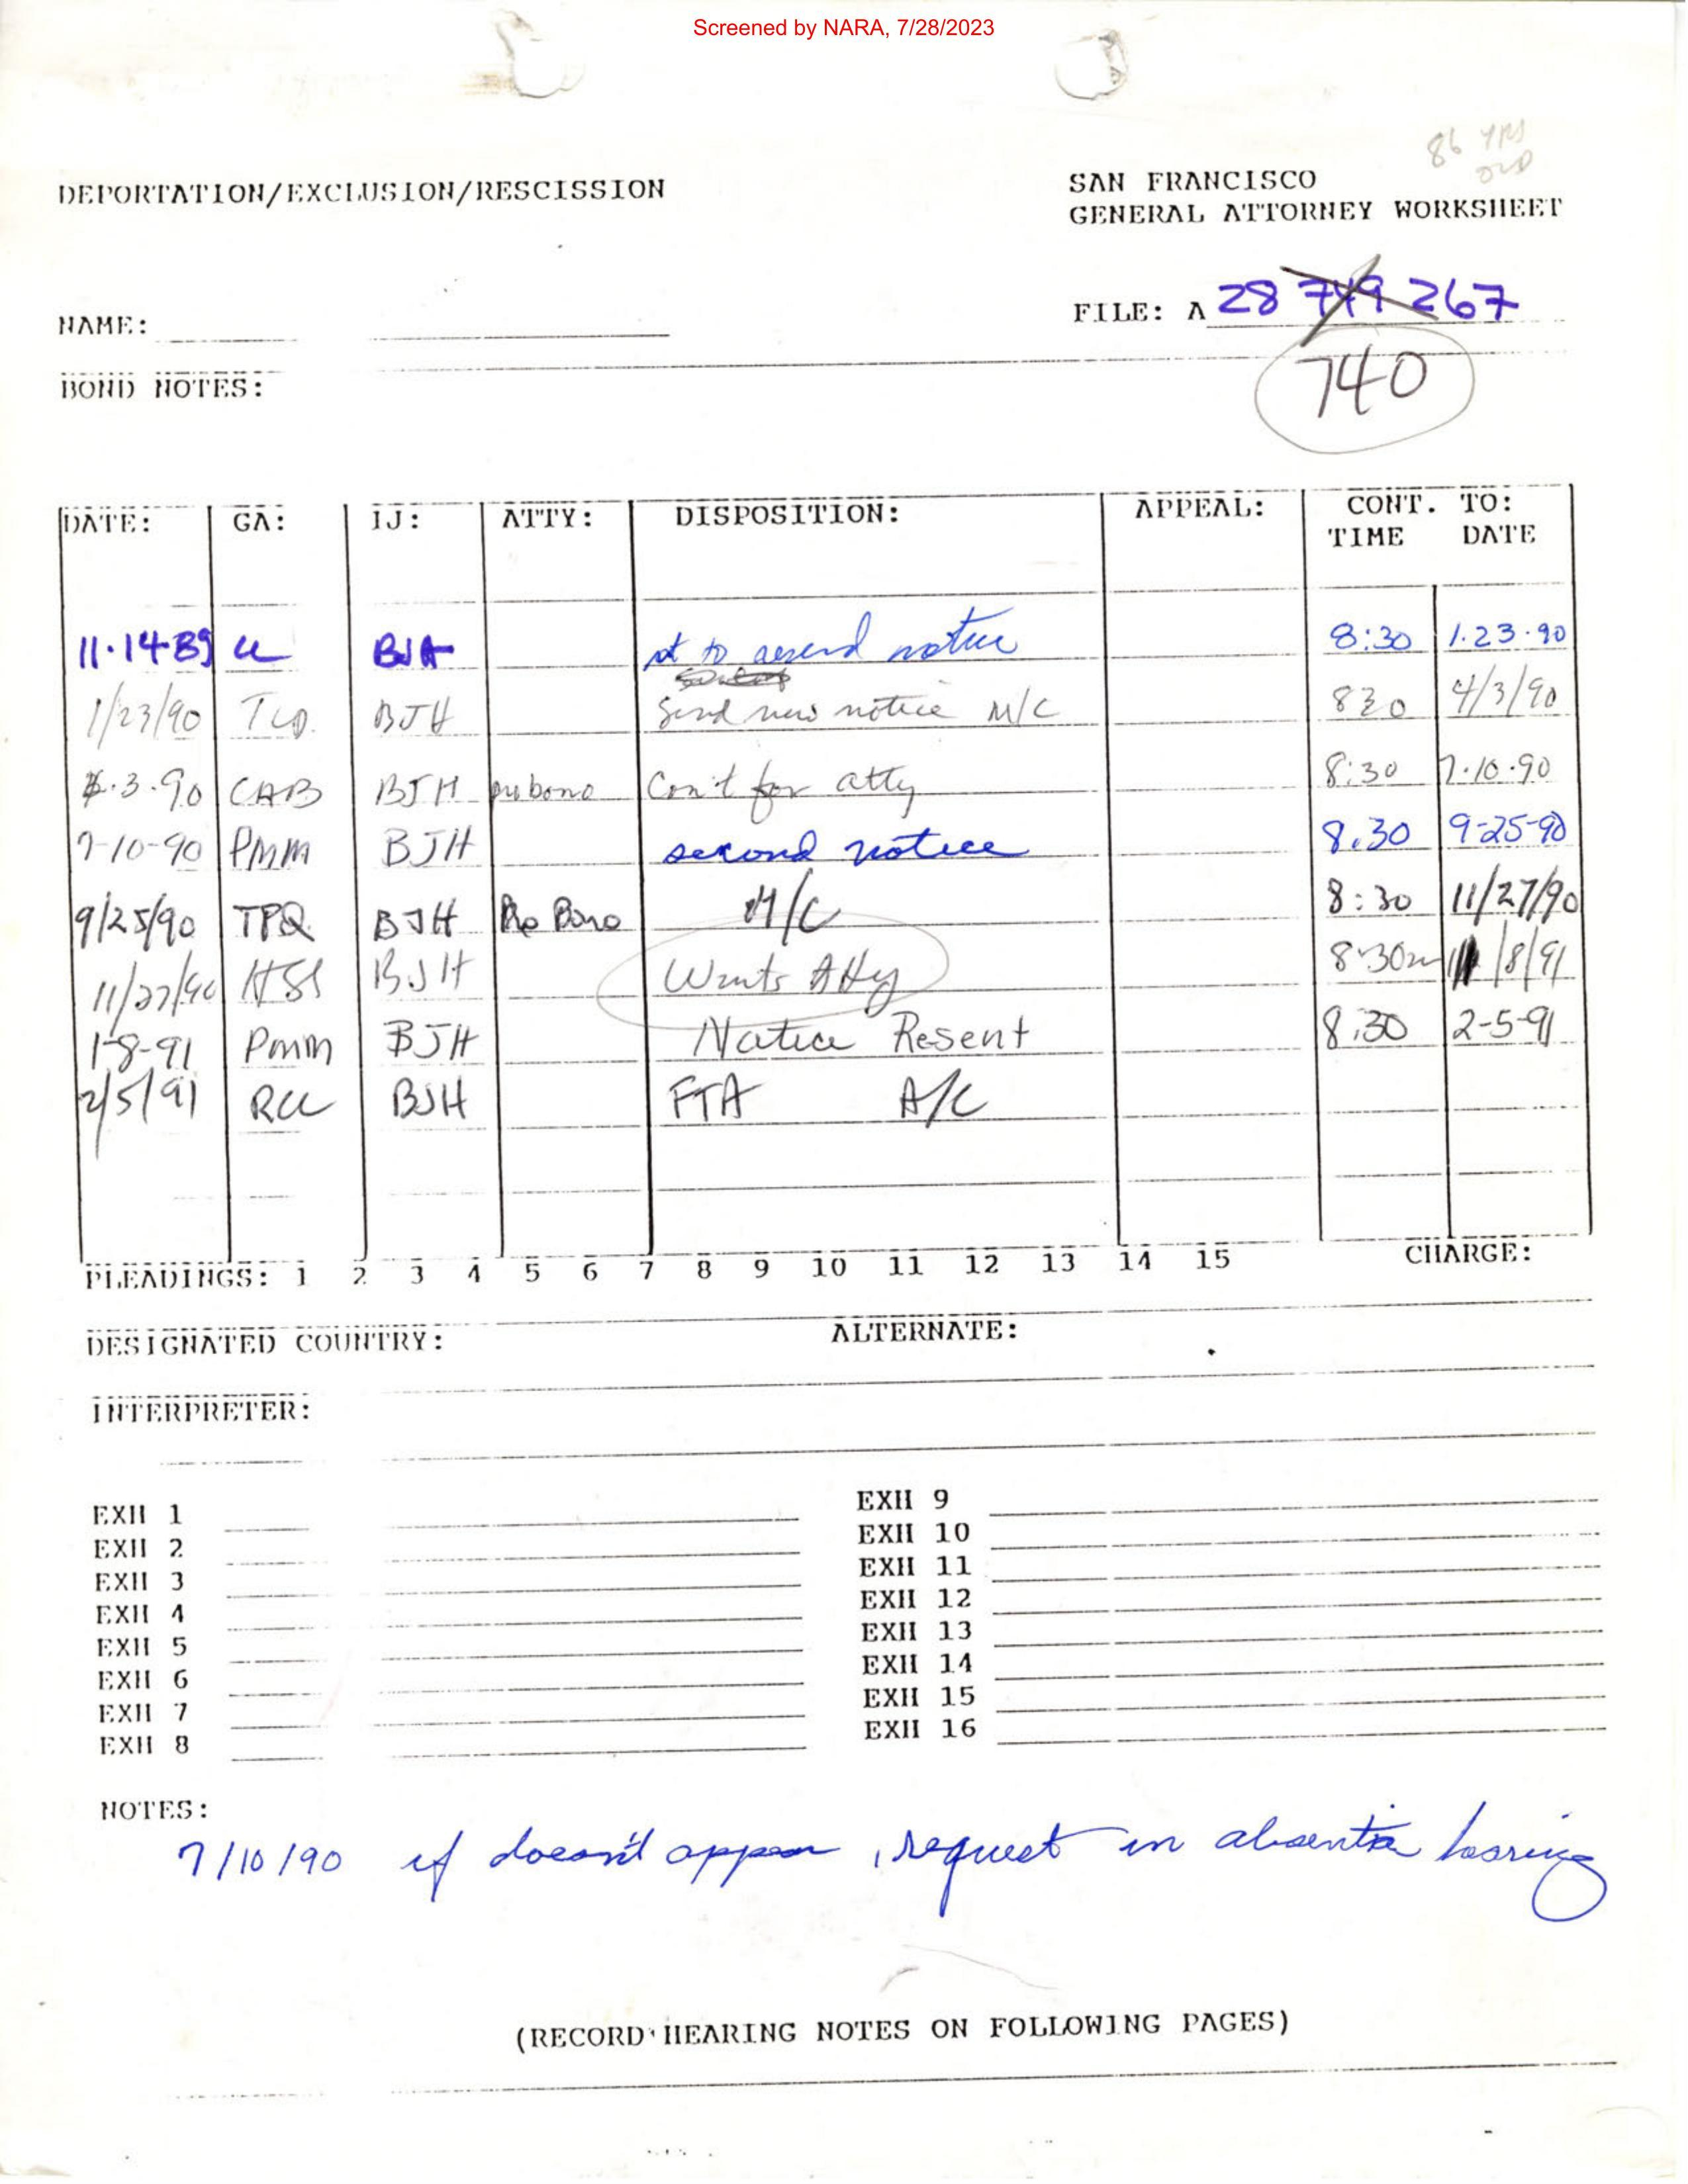 Screened by NARA, 7/28/2023
86 YRS
OLD
DEPORTATION/EXCLUSION/RESCISSION
SAN FRANCISCO
GENERAL ATTORNEY WORKSHEET
NAME:
FILE: A 28 749 267
740
BOND NOTES:
DATE: GA: IJ: ATTY: DISPOSITION: APPEAL: CONT. TO:
TIME DATE
11.14.89 BJH to resend notice 8:30 1.23.90
1/23/90 BJH Send new notice M/C 830 4/3/90
.3.90 CAB BJH pro bono Con't for atty 8:30 7.10.90
7-10-90 PMM BJH second notice 8:30 9-25-90
9/25/90 TPQ BJH Pro Bono M/C 8:30 11/27/90
11/27/90 HSS BJH Wants Atty 8:30 1/8/91
1-8-91 PMM BJH Notice Resent 8:30 2-5-91
2/5/91 RCC BJH FTA A/C
PLEADINGS: 1 2 3 4 5 6 7 8 9 10 11 12 13 14 15 CHARGE:
DESIGNATED COUNTRY: ALTERNATE:
INTERPRETER:
EXH 1 EXH 9
EXH 2 EXH 10
EXH 3 EXH 11
EXH 4 EXH 12
EXH 5 EXH 13
EXH 6 EXH 14
EXH 7 EXH 15
EXH 8 EXH 16
NOTES:
7/10/90 if doesn't appear, request in absentia hearing
(RECORD HEARING NOTES ON FOLLOWING PAGES)